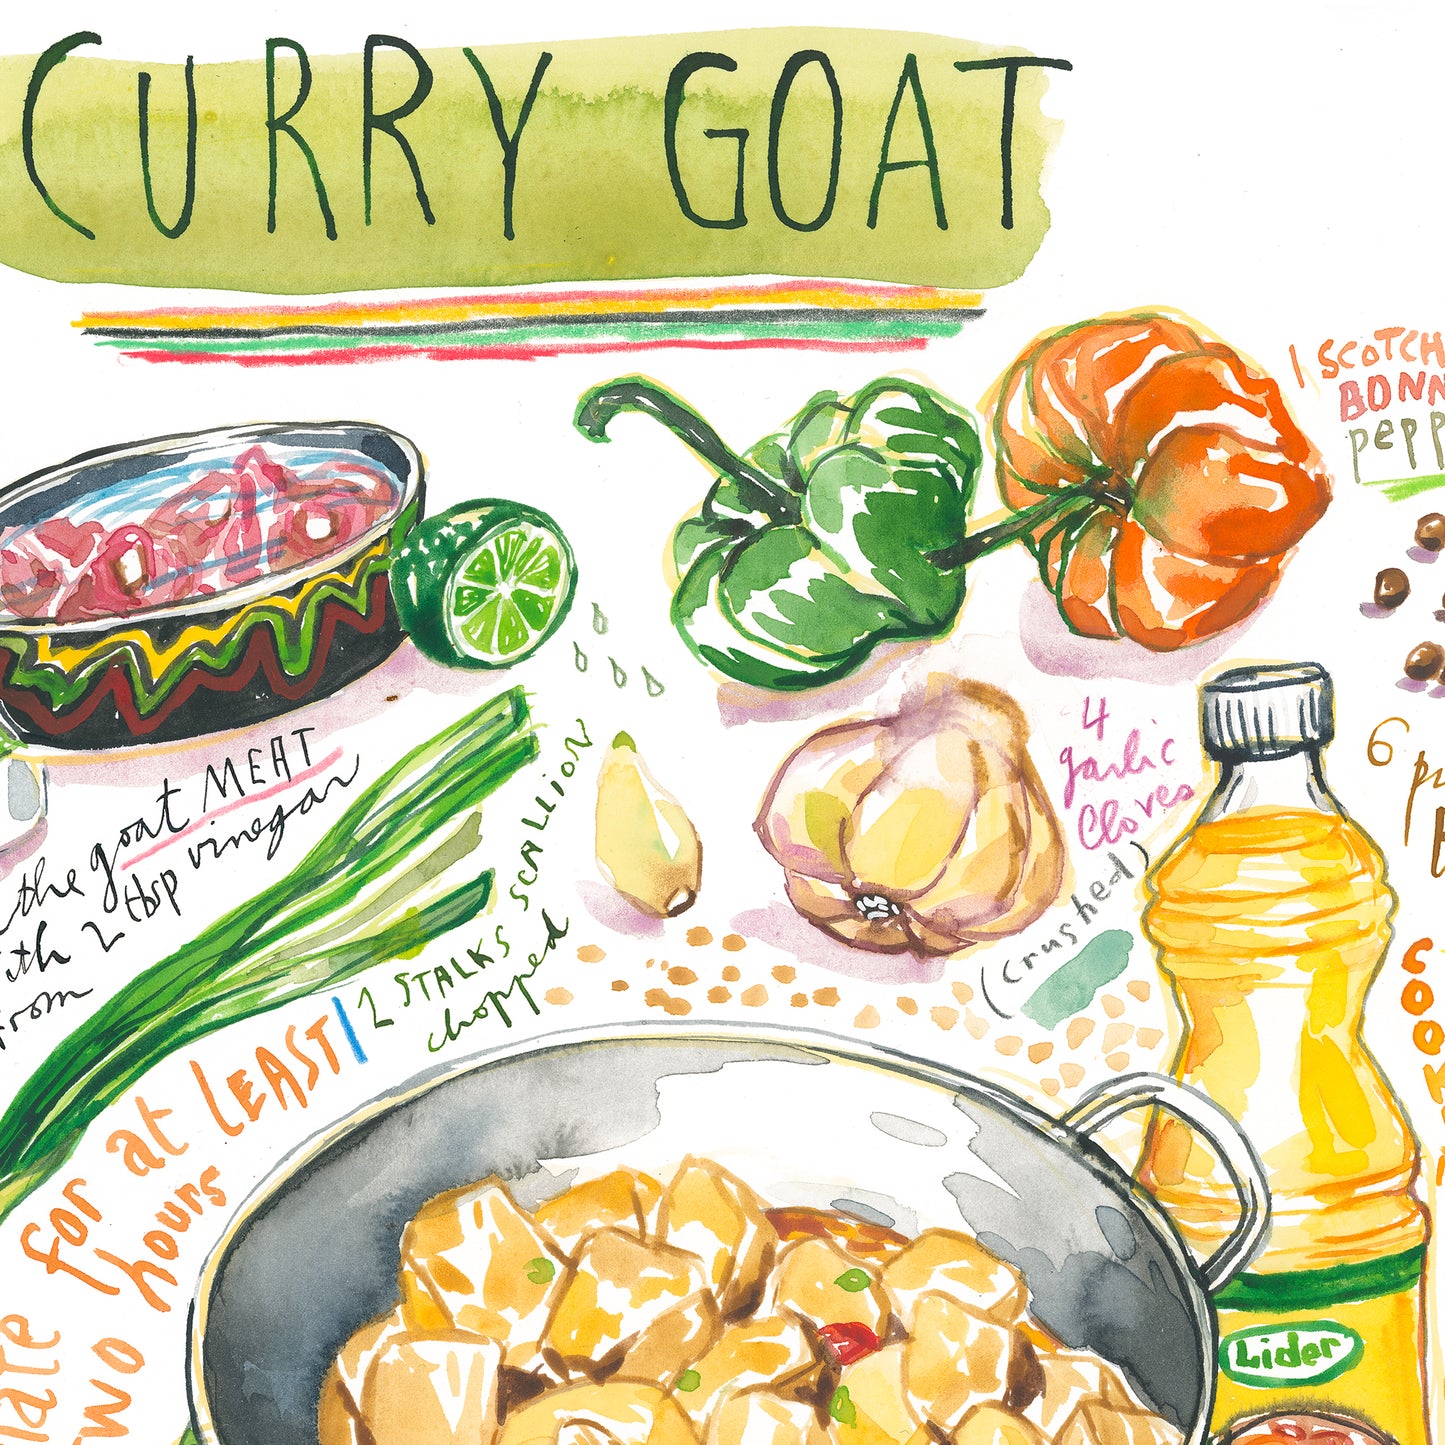 CURRY GOAT
1 SCOTCH
BONN
pepp
the goat MEAT
ith 2 tbsp vinegar
from
2 STALKS SCALLION
chopped
4
garlic
cloves
(crushed)
6 p
COOK
for at LEAST
two hours
Lider